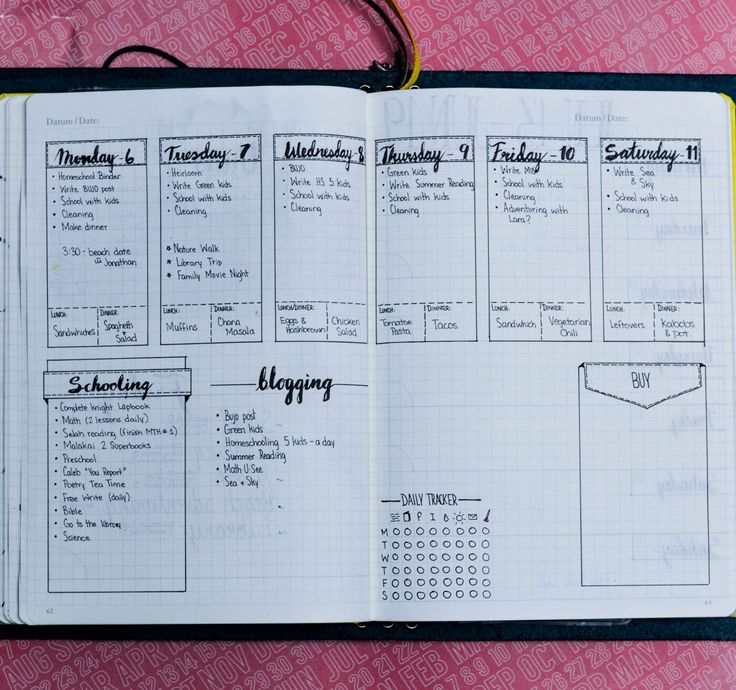 Datum / Date:
Datum / Date:
Monday - 6
• Homeschool Binder
• Write BUJO post
• School with kids
• Cleaning
• Make dinner
3:30 - beach date
Jonathan
LUNCH:
Sandwhiches
DINNER:
Spaghetti
+
Salad
Tuesday - 7
• Heirloom
• Write Green kids
• School with kids
• Cleaning
★ Nature Walk
★ Library Trip
★ Family Movie Night
LUNCH:
Muffins
DINNER:
Chana
Masala
Wednesday - 8
• BUJO
• Write HS 5 kids
• School with kids
• Cleaning
LUNCH/DINNER:
Eggs &
Hashbrown
Chicken
Salad
Thursday - 9
• Green kids
• Write Summer Reading
• School with kids
• Cleaning
LUNCH:
Tomatoe
Pasta
DINNER:
Tacos
Friday - 10
• Write MUS
• School with kids
• Cleaning
• Adventuring with
Lara?
LUNCH:
Sandwhich
DINNER:
Vegetarian
Chili
Saturday - 11
• Write Sea
& Sky
• School with kids
• Cleaning
LUNCH:
Leftovers
DINNER:
Kabobs
& pot.
Schooling
• Complete knight Lapbook
• Math (2 lessons daily)
• Selah reading (finish MTH # 1)
• Malakai 2 Superbooks
• Preschool
• Caleb "You Report"
• Poetry Tea Time
• Free Write (daily)
• Bible
• Go to the library
• Science
blogging
• Bujo post
• Green kids
• Homeschooling 5 kids - a day
• Summer Reading
• Math U-See
• Sea + Sky
DAILY TRACKER
P I
M
T
W
T
F
S
BUY
62
63